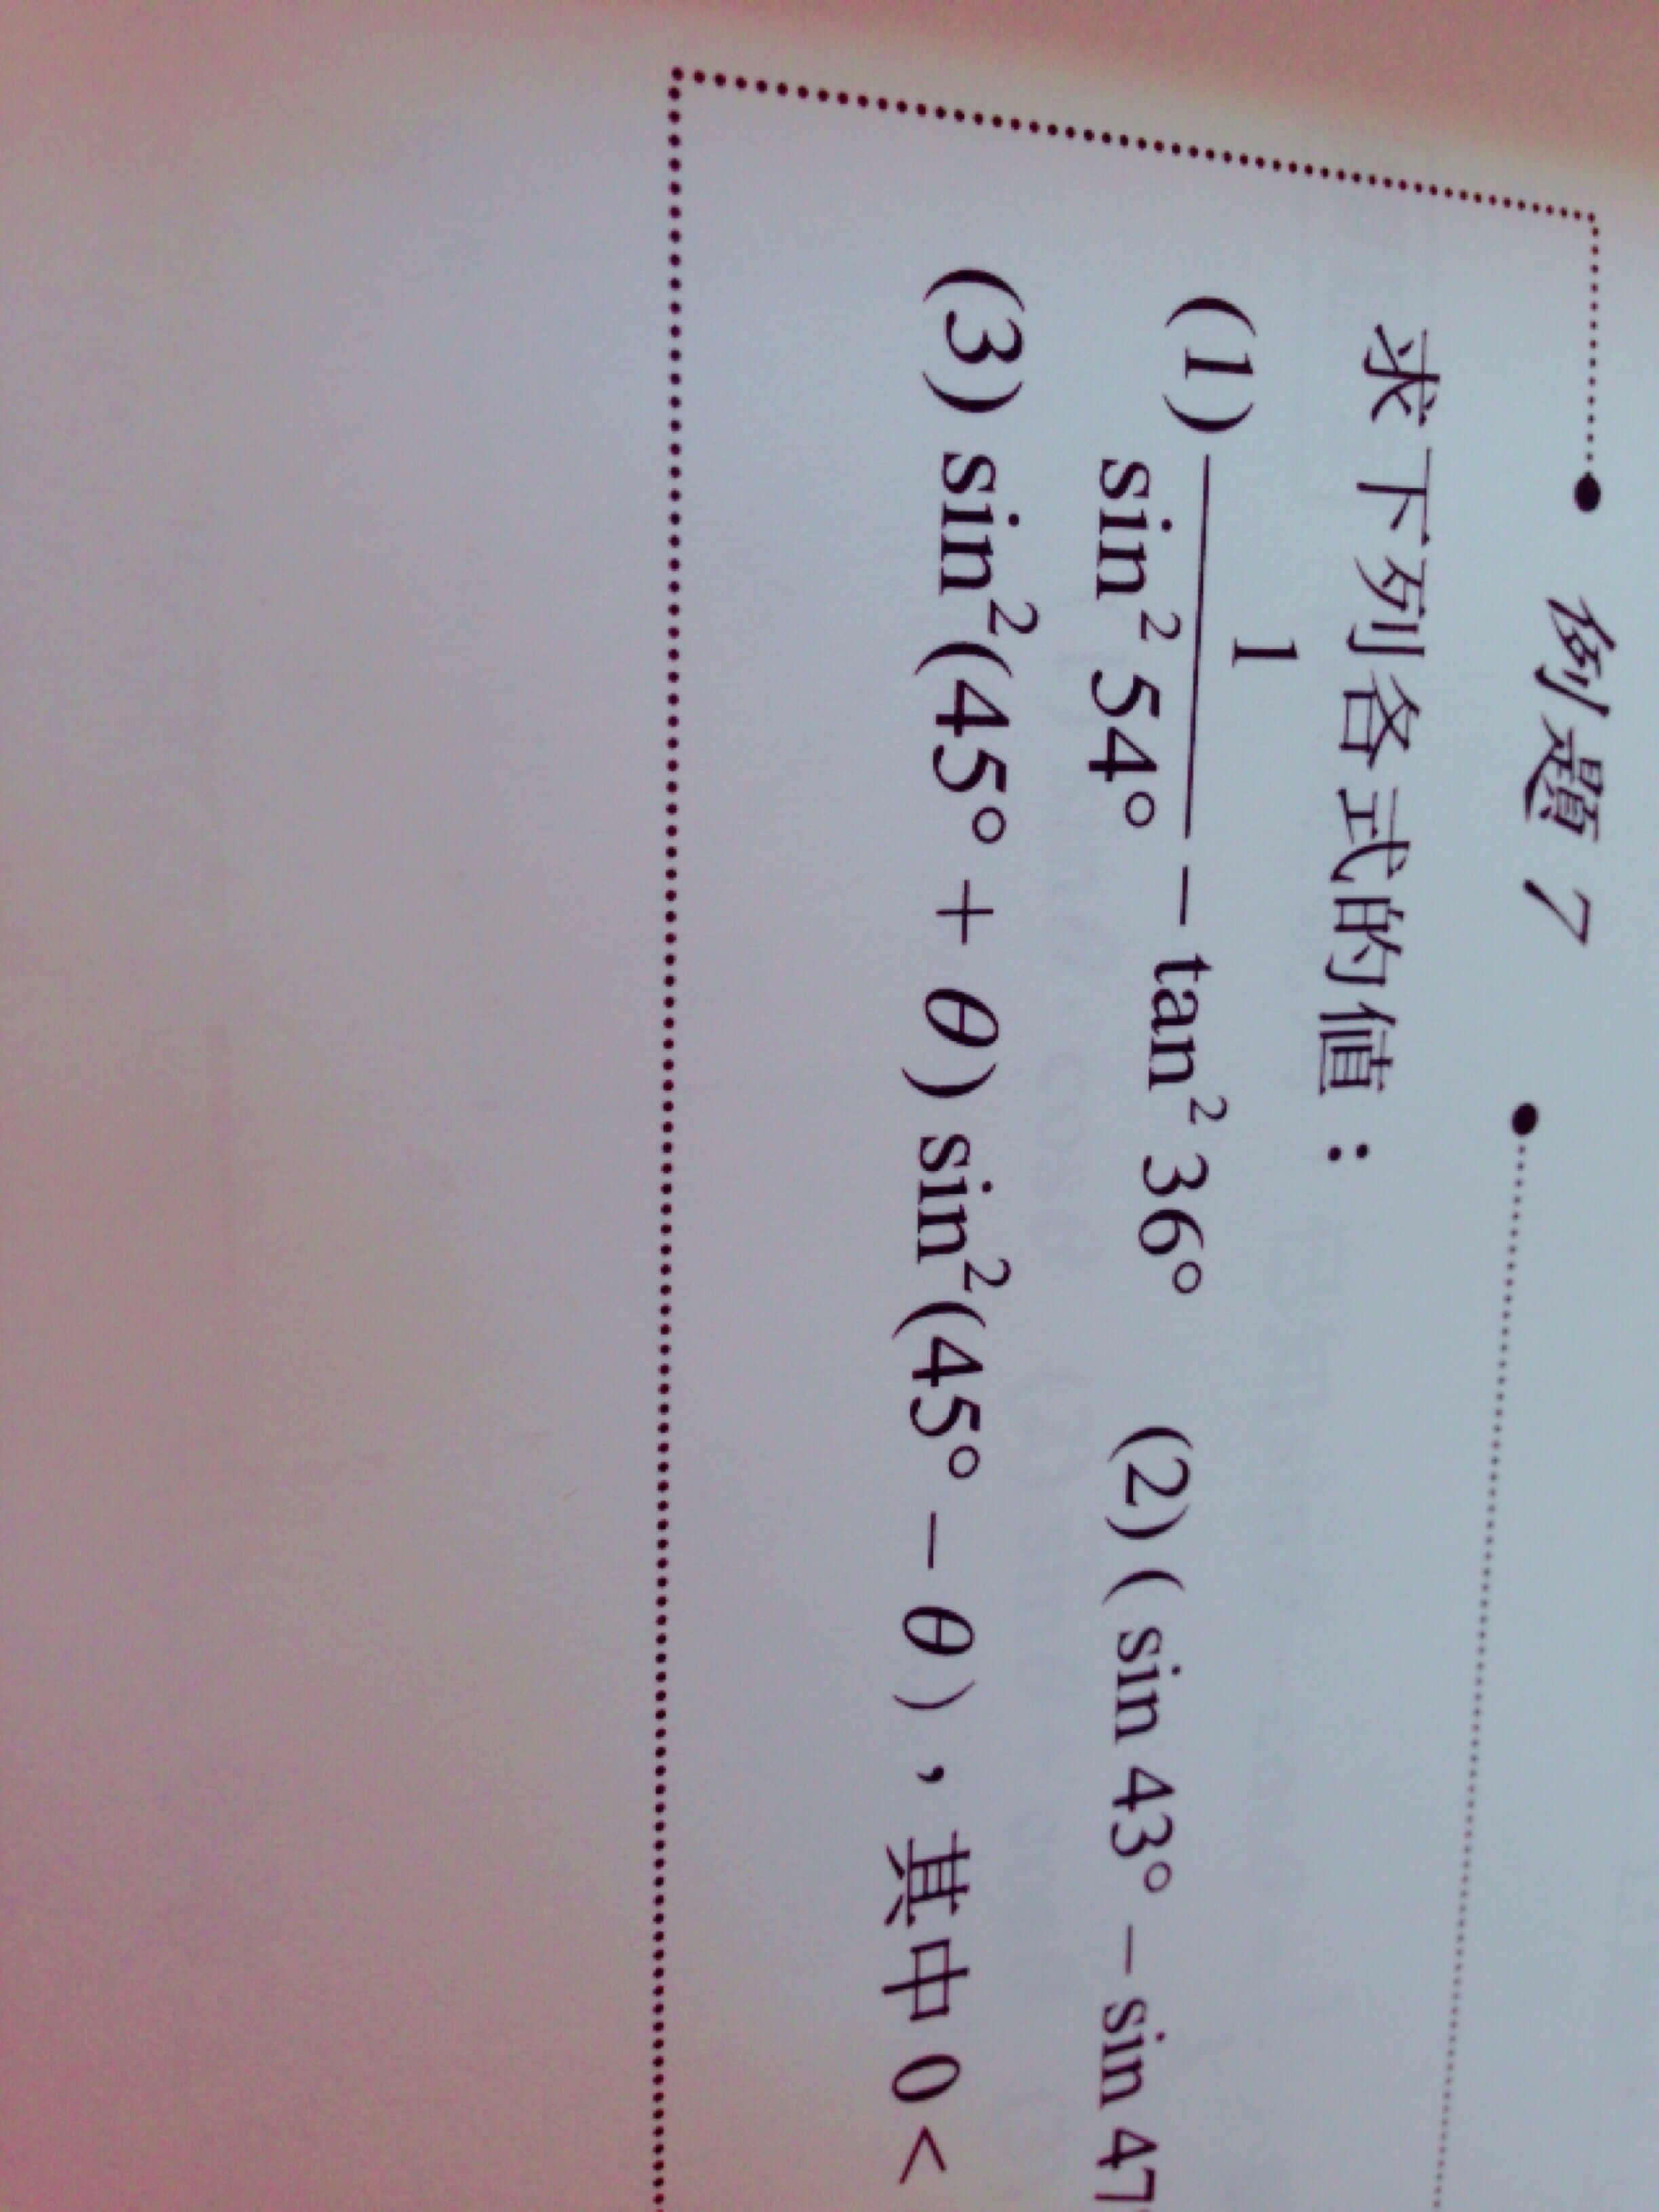 例題 7
求下列各式的值：
(1) \frac{1}{\sin^2 54°} - \tan^2 36° (2) ( sin 43° - sin 47
(3) sin²(45° + θ) sin²(45° - θ)，其中 0 <